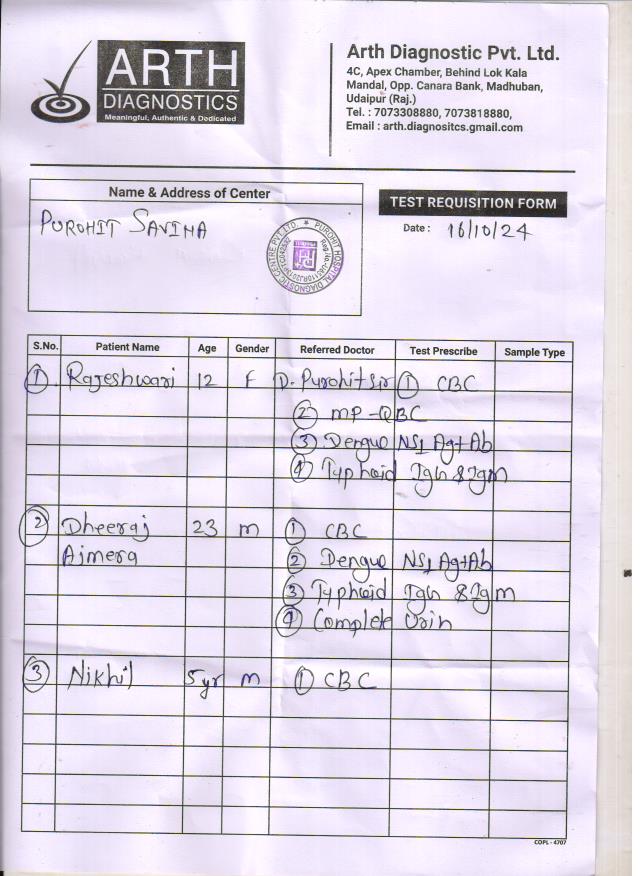 ARTH
DIAGNOSTICS
Meaningful, Authentic & Dedicated
Arth Diagnostic Pvt. Ltd.
4C, Apex Chamber, Behind Lok Kala
Mandal, Opp. Canara Bank, Madhuban,
Udaipur (Raj.)
Tel. : 7073308880, 7073818880,
Email : arth.diagnositcs.gmail.com
Name & Address of Center
PUROHIT SAVINA
TEST REQUISITION FORM
Date : 16/10/24
S.No. Patient Name Age Gender Referred Doctor Test Prescribe Sample Type
1 Rajeshwari 12 F D. Purohit sir 1 CBC
2 MP-QBC
3 Dengue NS1 Ag+Ab
4 Typhoid IgG & Igm
2 Dheeraj 23 m 1 CBC
Ajmera 2 Dengue NS1 Ag+Ab
3 Typhoid IgG & Igm
4 Complete Urin
3 Nikhil 5yr m 1 CBC
COPL - 4707